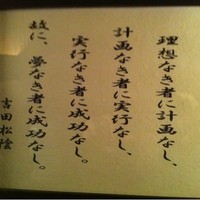 理想なき者に計画なし、
計画なき者に実行なし、
実行なき者に成功なし。
故に、夢なき者に成功なし。
吉田松陰